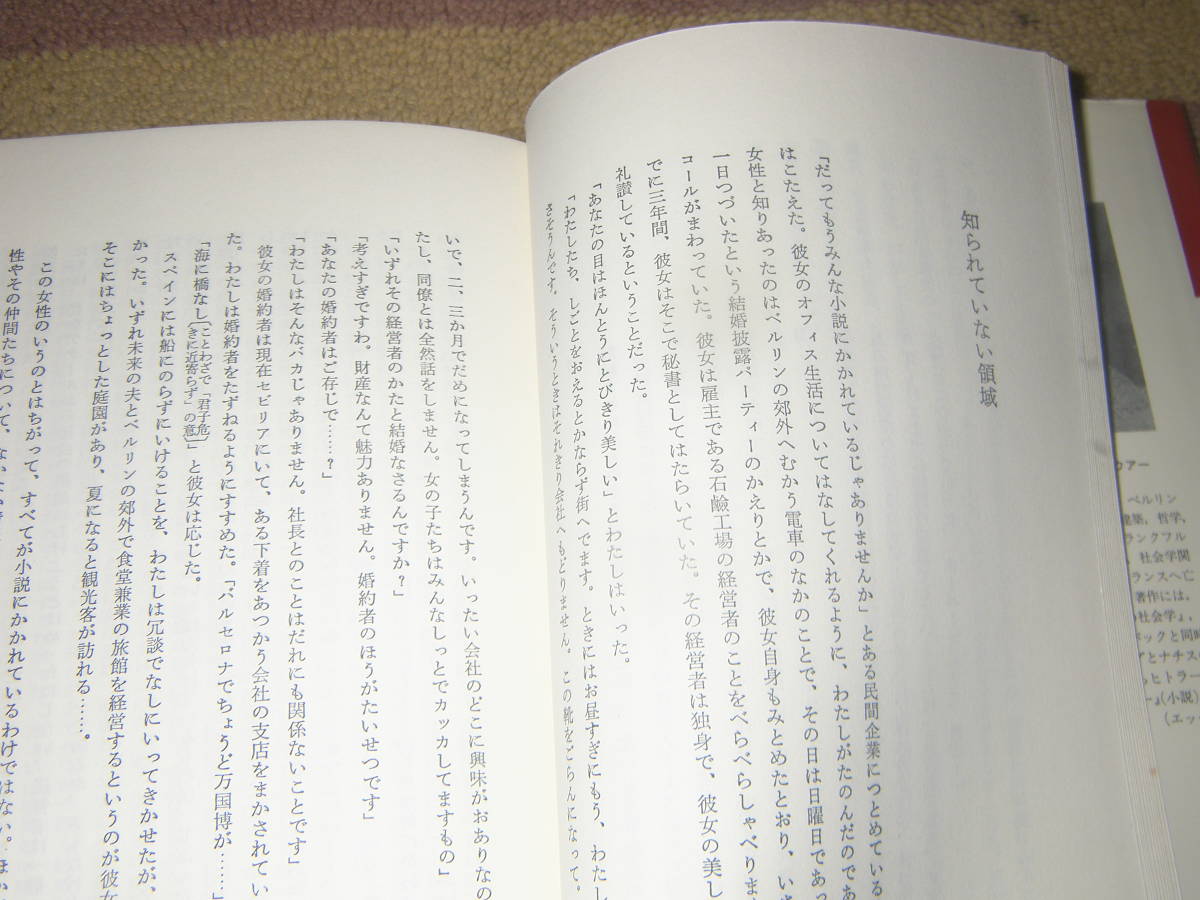 知られていない領域
「だってもうみんな小説にかかれているじゃありませんか」とある民間企業につとめている
はこたえた。彼女のオフィス生活についてはなしてくれるように、わたしがたのんだのであ
女性と知りあったのはベルリンの郊外へむかう電車のなかのことで、その日は日曜日であっ
一日つづいたという結婚披露パーティーのかえりとかで、彼女自身もみとめたとおり、いさ
コールがまわっていた。彼女は雇主である石鹸工場の経営者のことをべらべらしゃべりま
でに三年間、彼女はそこで秘書としてはたらいていた。その経営者は独身で、彼女の美し
礼讃しているということだった。
「あなたの目はほんとうにとびきり美しい」とわたしはいった。
「わたしたち、しごとをおえるとかならず街へでます。ときにはお昼すぎにもう、わたし
さそうんです。そういうときはそれきり会社へもどりません。この靴をごらんになって。
いで、二、三か月でだめになってしまうんです。いったい会社のどこに興味がおありなの
たし、同僚とは全然話をしません。女の子たちはみんなしっとでカッカしてますもの」
「いずれその経営者のかたと結婚なさるんですか？」
「考えすぎですわ。財産なんて魅力ありません。婚約者のほうがたいせつです」
「あなたの婚約者はご存じで……？」
「わたしはそんなバカじゃありません。社長とのことはだれにも関係ないことです」
彼女の婚約者は現在セビリアにいて、ある下着をあつかう会社の支店をまかされてい
た。わたしは婚約者をたずねるようにすすめた。「バルセロナでちょうど万国博が……」
「海に橋なし〔ことわざで「君子危きに近寄らず」の意〕」と彼女は応じた。
スペインには船にのらずにいけることを、わたしは冗談でなしにいってきかせたが、
かった。いずれ未来の夫とベルリンの郊外で食堂兼業の旅館を経営するというのが彼女
そこにはちょっとした庭園があり、夏になると観光客が訪れる……。
この女性のいうのとはちがって、すべてが小説にかかれているわけではない。ほか
性やその仲間たちについて、
ウアー
ベルリン
建築，哲学，
ランクフル
社会学関
ランスへ亡
著作には，
社会学』，
ボックと同時
アとナチスの
らヒトラー
ー』(小説)
(エッ